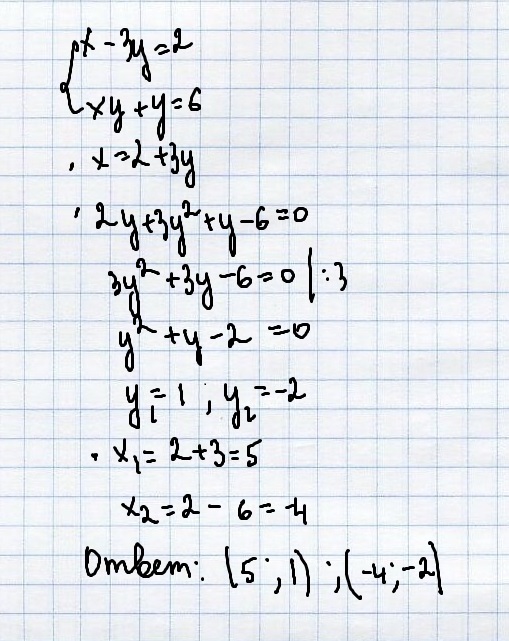 {x - 3y = 2
xy + y = 6
x = 2 + 3y
2y + 3y² + y - 6 = 0
3y² + 3y - 6 = 0 | : 3
y² + y - 2 = 0
y₁ = 1 ; y₂ = -2
x₁ = 2 + 3 = 5
x₂ = 2 - 6 = -4
Ответ: (5 ; 1) ; (-4 ; -2)